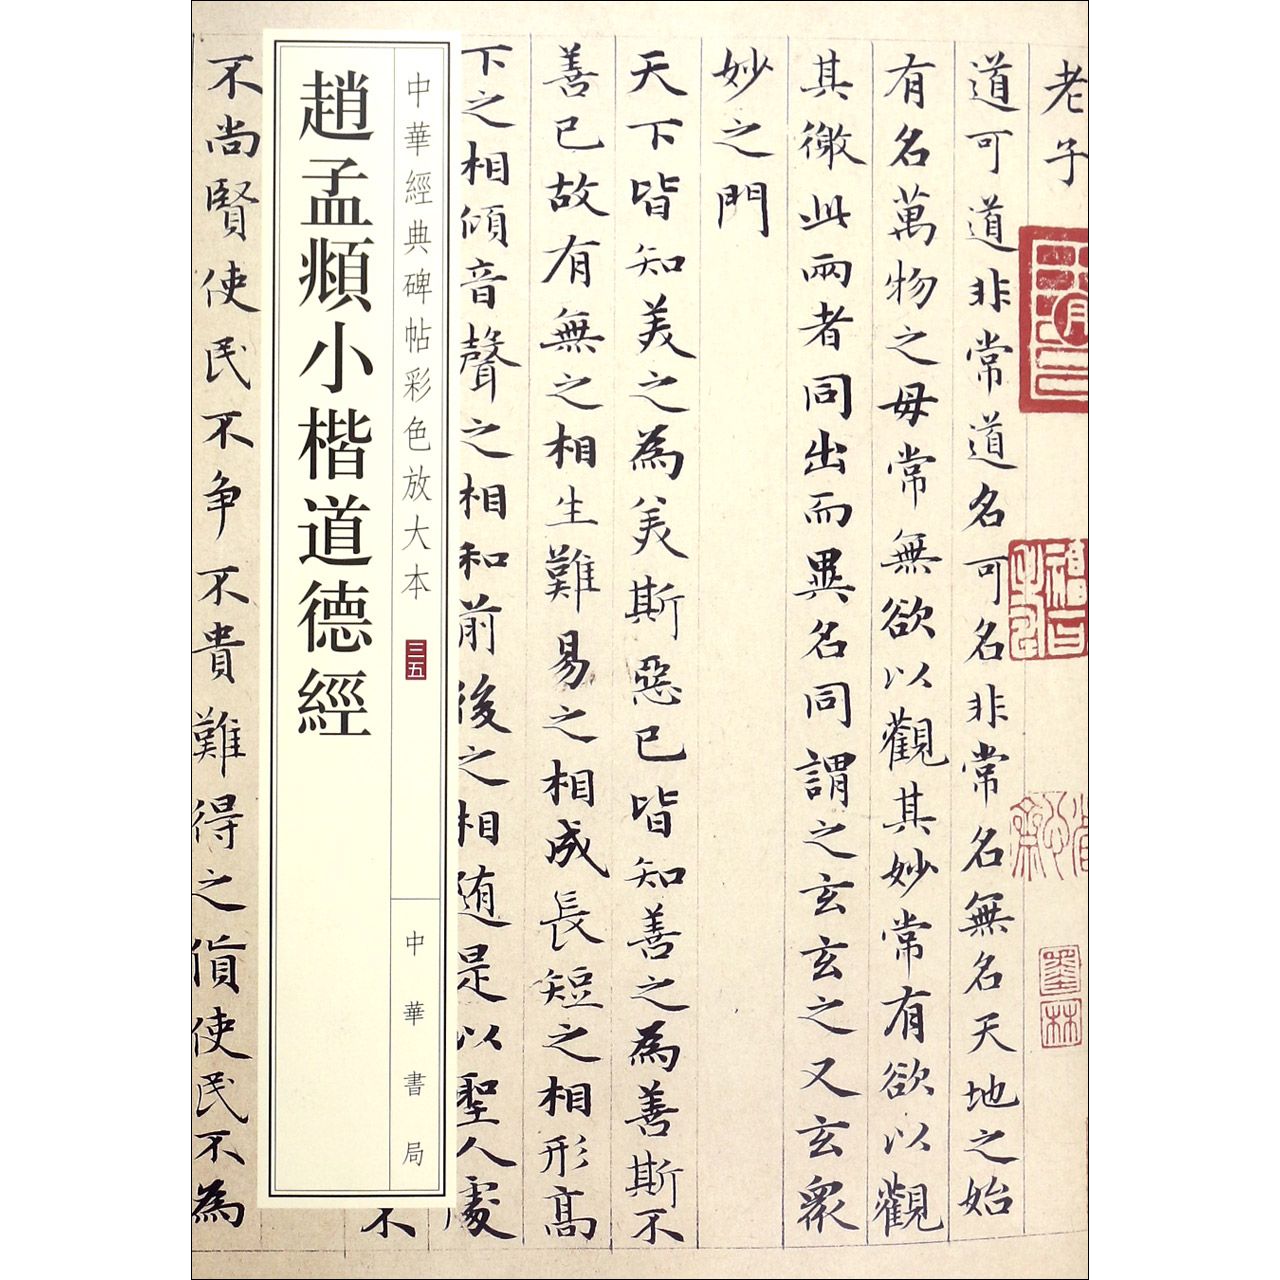 老子
道可道非常道名可名非常名無名天地之始
有名萬物之母常無欲以觀其妙常有欲以觀
其徼此兩者同出而異名同謂之玄玄之又玄衆
妙之門
天下皆知美之為美斯惡已皆知善之為善斯不
善已故有無之相生難易之相成長短之相形高
下之相傾音聲之相和前後之相随是以聖人處
中華經典碑帖彩色放大本
三五
中華書局
趙孟頫小楷道德經
不
不尚賢使民不争不貴難得之貨使民不為
墨林